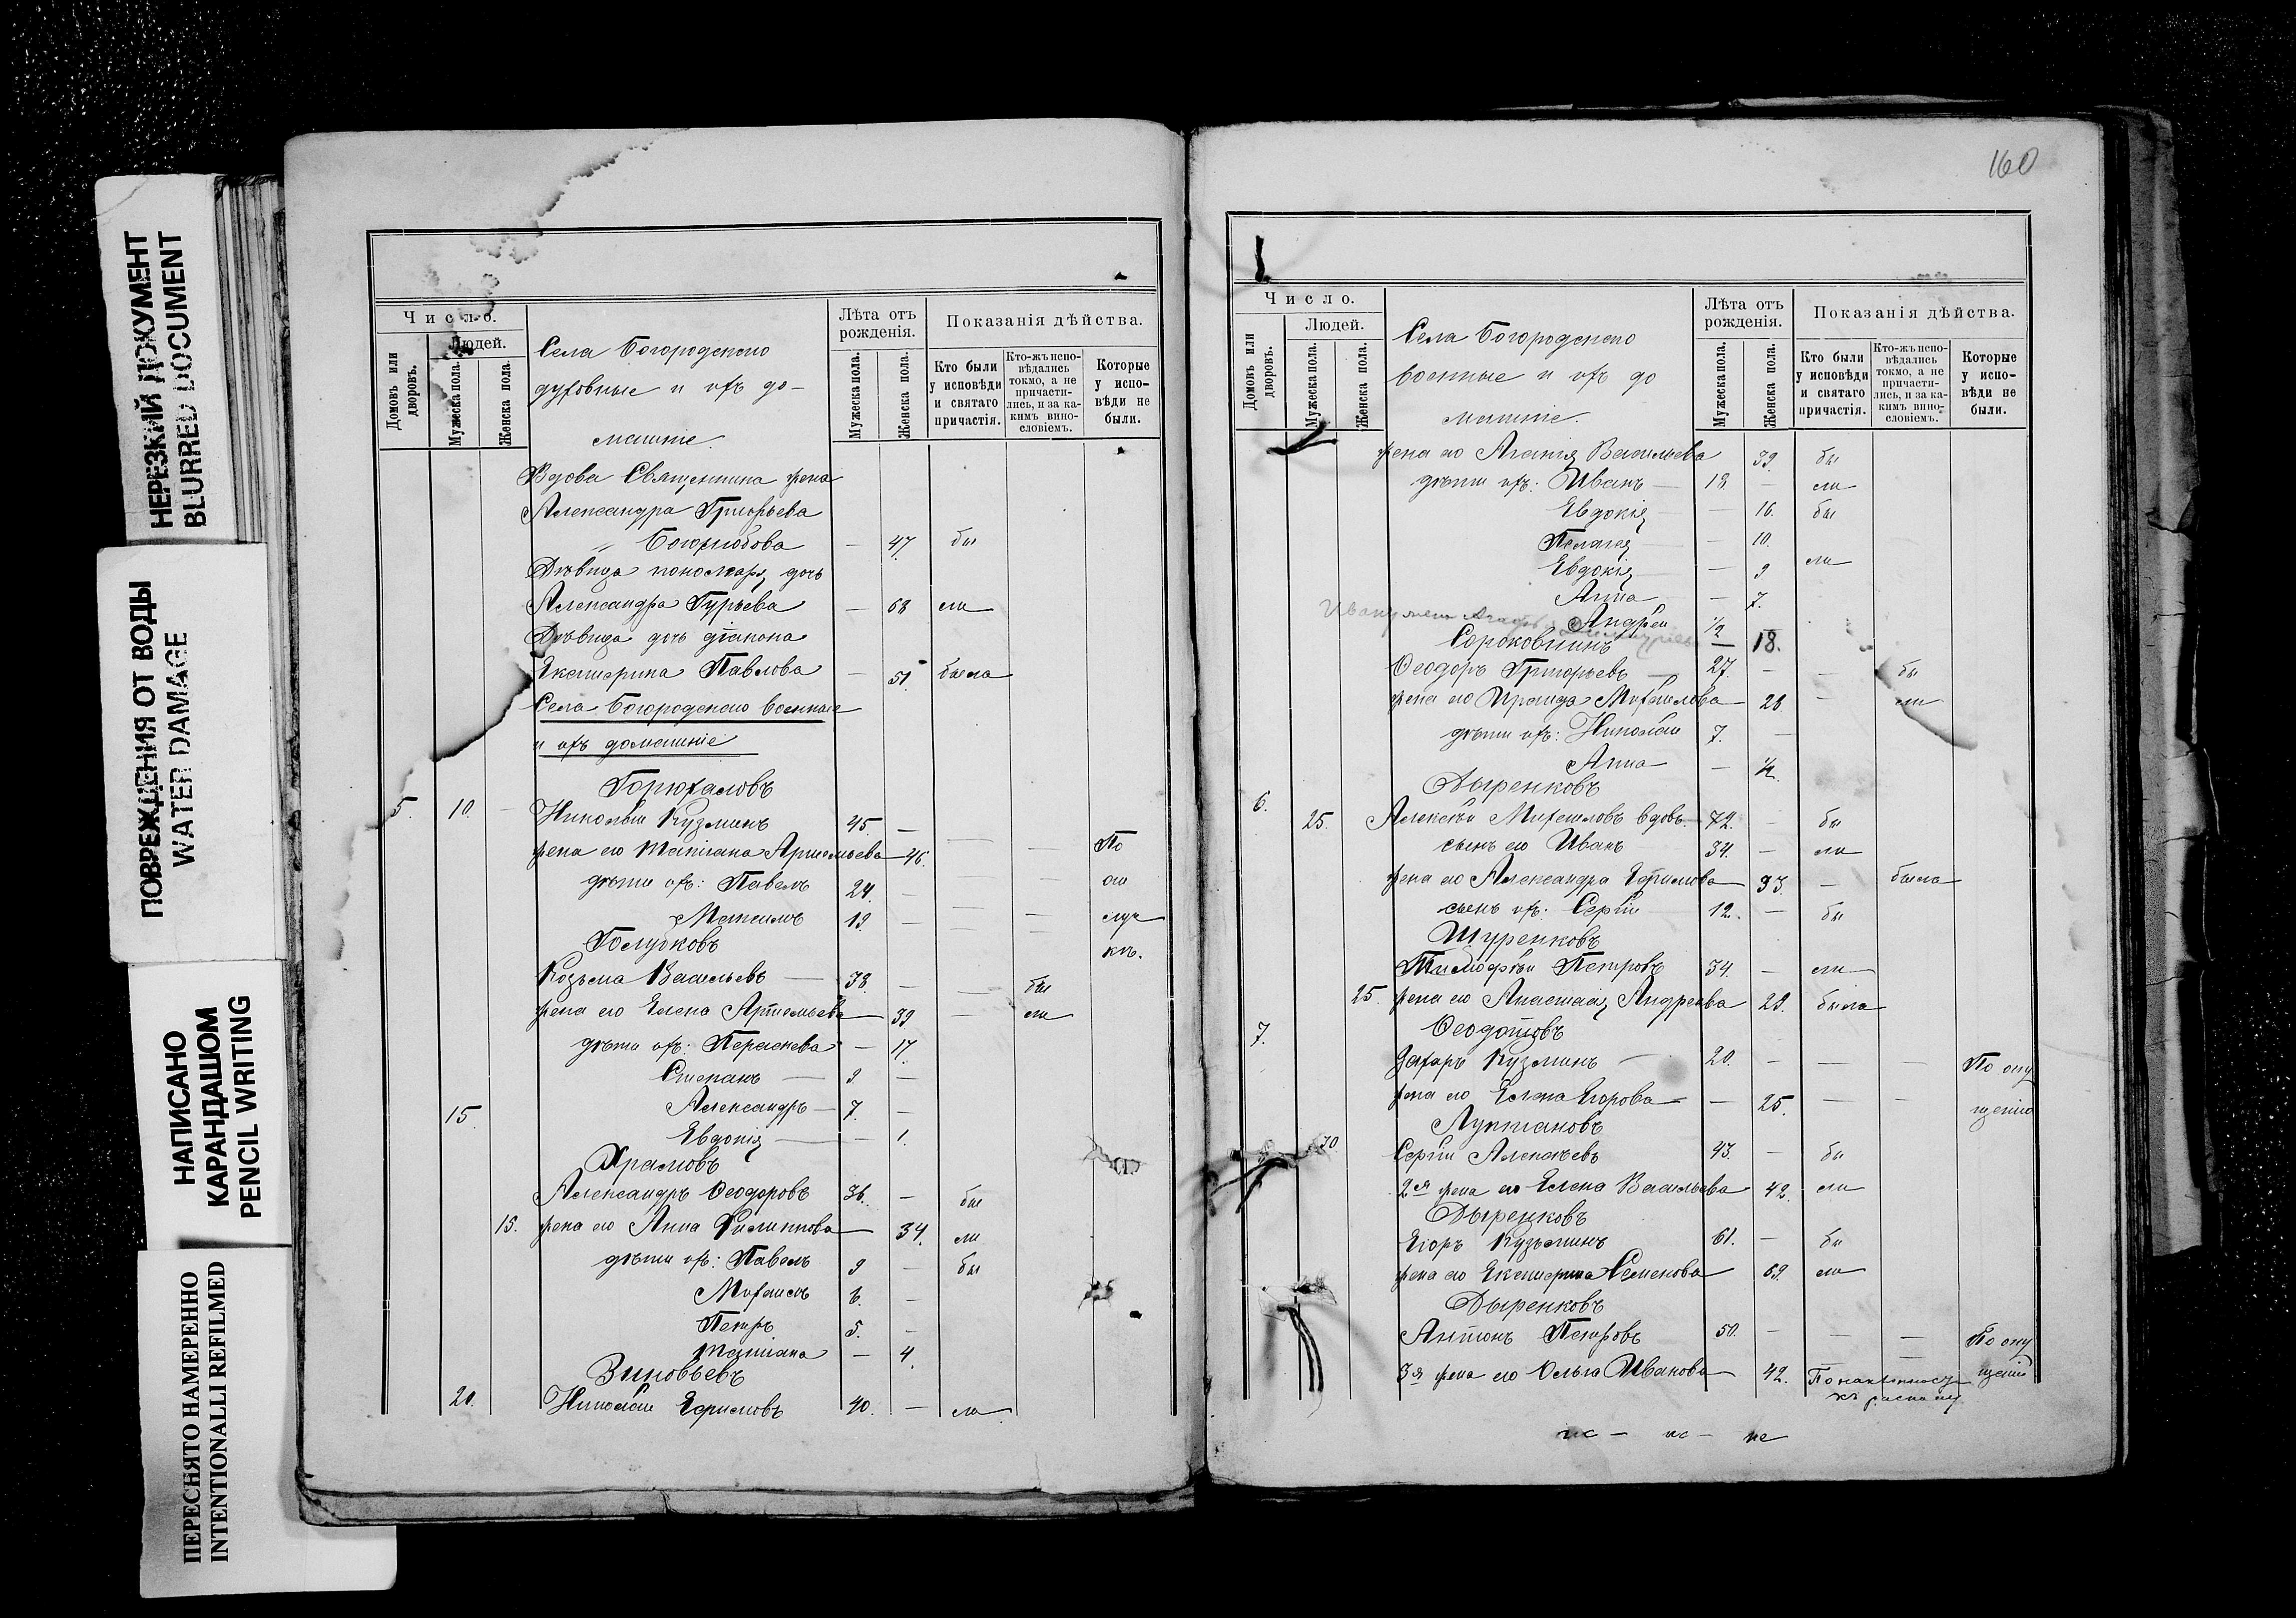 НЕРЕЗКИЙ ДОКУМЕНТ
BLURRED DOCUMENT
ПОВРЕЖДЕНИЯ ОТ ВОДЫ
WATER DAMAGE
НАПИСАНО
КАРАНДАШОМ
PENCIL WRITING
ПЕРЕСНЯТО НАМЕРЕННО
INTENTIONALLI REFILMED
Число.
Людей.
Домовъ или дворовъ.
Мужеска пола.
Женска пола.
Села Богородского
духовные и ихъ до-
машніе
Лѣта отъ рожденія.
Мужеска пола.
Женска пола.
Показанія дѣйства.
Кто были у исповѣди и святаго причастія.
Кто-жъ исповѣдались токмо, а не причастились, и за какимъ винословіемъ.
Которые у исповѣди не были.
Вдова Священника жена
Александра Григорьева
Боголюбова — 47 бы
Дѣвица пономаря дочь
Александра Гурьева — 68 ли
Дѣвица дочь діакона
Екатерина Павлова — 51 была
Села Богородского военные
и ихъ домашніе
Горюхаловъ
5. 10. Николай Кузминъ 45. —
жена его Татіана Артемьева 46. — — По
дѣти ихъ: Павелъ 24. — — — оп
Михаилъ 19. — — — лук
Голубковъ кѣ.
Козьма Васильевъ — 38. — — бы
жена его Елена Артемьева 39 — ли
дѣти ихъ: Параскева — 17.
Степанъ — 9. —
15. Александръ — 7. —
Евдокія — — 1.
Храмовъ
Александръ Ѳеодоровъ 36. — бы
15. жена его Анна Филиппова 34. ли
дѣти ихъ: Павелъ 9 — бы
Михаилъ 6. —
Петръ 5. —
Татіана — 4.
Зиновьевъ
20. Николай Ефимовъ 40. — ли
160
Число.
Людей.
Домовъ или дворовъ.
Мужеска пола.
Женска пола.
Села Богородского
военные и ихъ до
машніе.
Лѣта отъ рожденія.
Мужеска пола.
Женска пола.
Показанія дѣйства.
Кто были у исповѣди и святаго причастія.
Кто-жъ исповѣдались токмо, а не причастились, и за какимъ винословіемъ.
Которые у исповѣди не были.
жена его Агапія Васильева 39. бы
дѣти ихъ: Иванъ — 18. — ли
Евдокія — 16. бы
Пелагея — 10.
Евдокія — 9 ли
Анна — 7.
Андрей 1/2
Сороковнинъ — 18.
Ѳеодоръ Григорьевъ — 27. — — бы
жена его Ираида Михаилова 28 — ли
дѣти ихъ: Николай 7. —
Анна — 1/2.
Дыренковъ
6. 25. Алексѣй Михаиловъ вдовъ. 72. — бы
сынъ его Иванъ 34. — ли
жена его Александра Ефимова 33. — была
сынъ ихъ: Сергій 12. — бы
Шуренковъ
Тимофѣй Петровъ 34. — ли
25. жена его Анастасія Андреева 29. была
7. Ѳеодотовъ
Захаръ Кузминъ — 20. — — — По опу
жена его Елена Егорова — 25. — — щенію
Луктановъ
30 Сергій Алексѣевъ 43. — бы
2я жена его Елена Васильева 42. ли
Дыренковъ
Егоръ Кузьминъ 61. — бы
жена его Екатерина Семенова 69. ли
Дыренковъ
Антонъ Петровъ 50. — — — По опу
3я жена его Ольга Иванова 42. По наклонности щенію
къ расколу